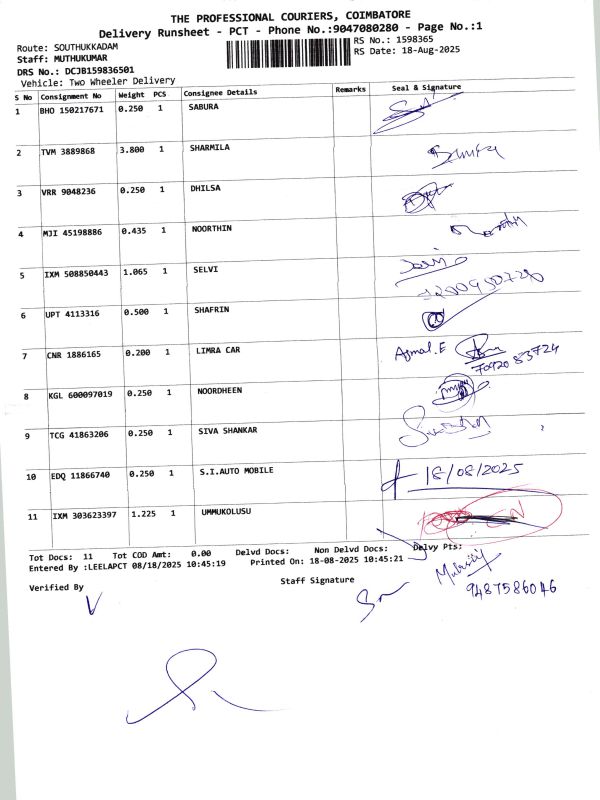 THE PROFESSIONAL COURIERS, COIMBATORE
Delivery Runsheet - PCT - Phone No.:9047080280 - Page No.:1
Route: SOUTHUKKADAM
RS No.: 1598365
Staff: MUTHUKUMAR
RS Date: 18-Aug-2025
DRS No.: DCJB159836501
Vehicle: Two Wheeler Delivery
S No Consignment No Weight PCS Consignee Details Remarks Seal & Signature
1 BHO 150217671 0.250 1 SABURA
2 TVM 3889868 3.800 1 SHARMILA
3 VRR 9048236 0.250 1 DHILSA
4 MJI 45198886 0.435 1 NOORTHIN
5 IXM 508850443 1.065 1 SELVI
6 UPT 4113316 0.500 1 SHAFRIN
7 CNR 1886165 0.200 1 LIMRA CAR Ajmal.E
70920 83724
8 KGL 600097019 0.250 1 NOORDHEEN
9 TCG 41863206 0.250 1 SIVA SHANKAR
10 EDQ 11866740 0.250 1 S.I.AUTO MOBILE 18/08/2025
11 IXM 303623397 1.225 1 UMMUKOLUSU
Tot Docs: 11 Tot COD Amt: 0.00 Delvd Docs: Non Delvd Docs: Delvy Pts:
Entered By :LEELAPCT 08/18/2025 10:45:19 Printed On: 18-08-2025 10:45:21
Verified By Staff Signature
9487586046